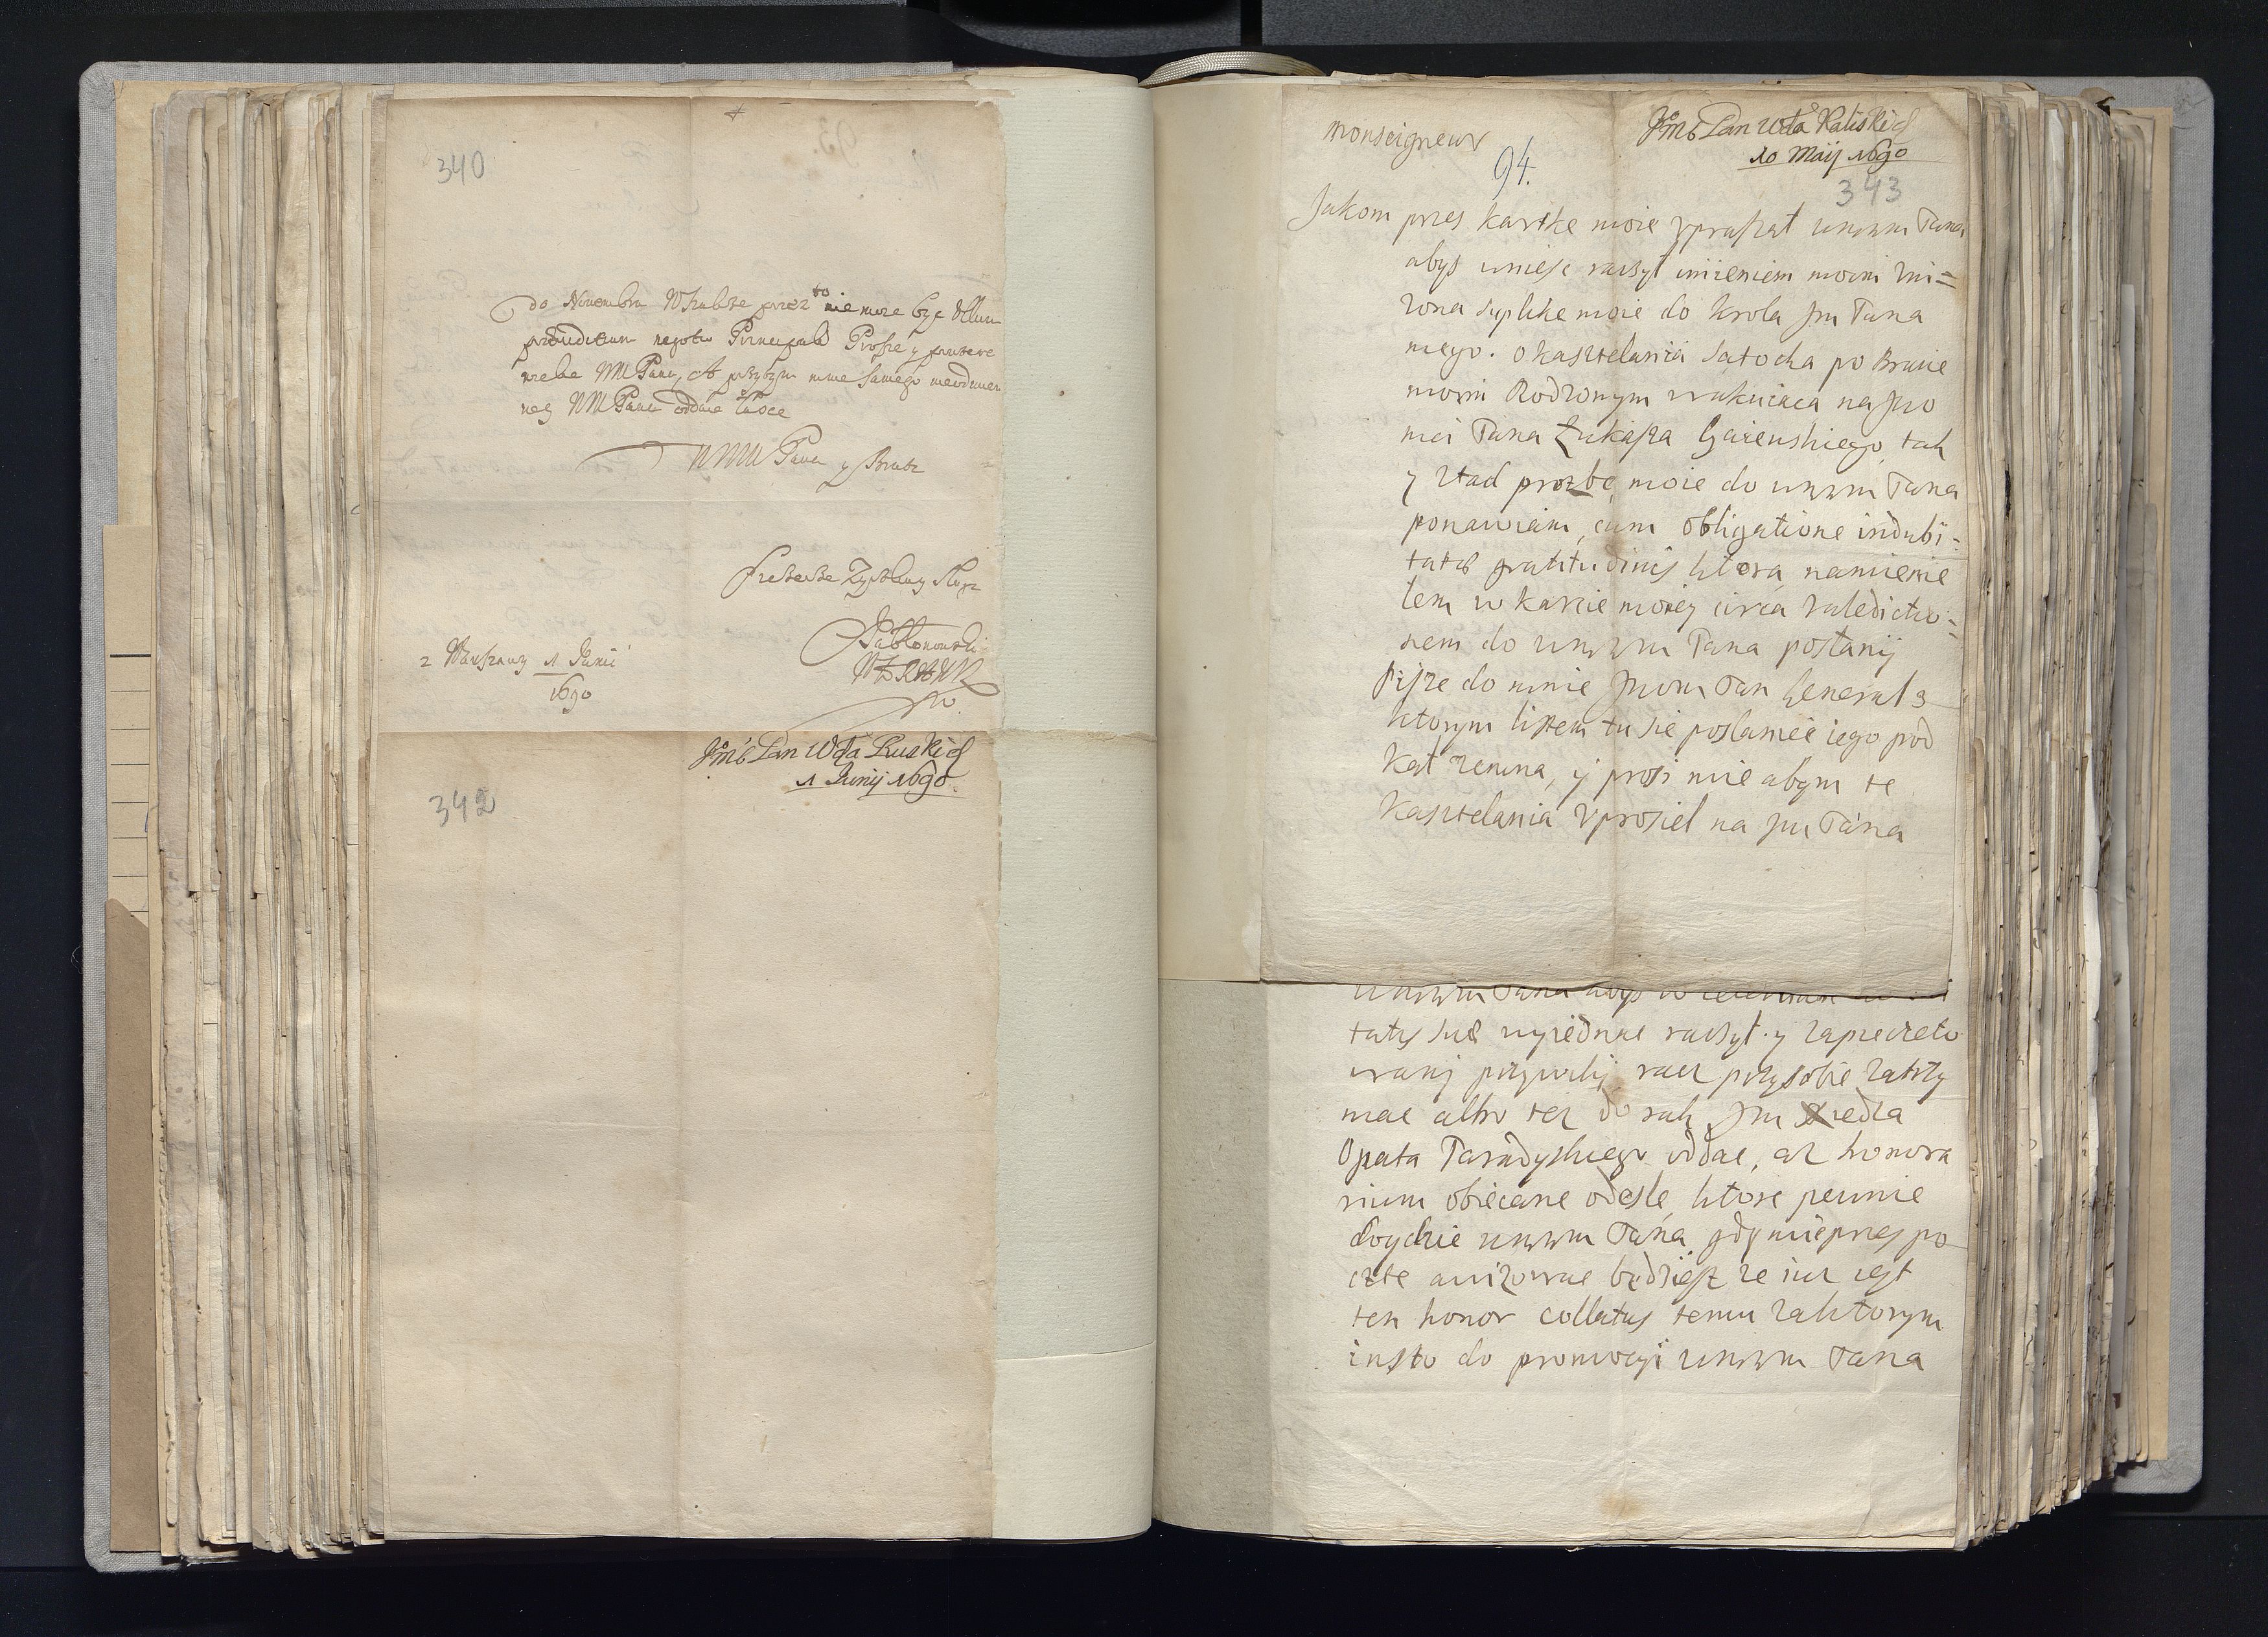 340
do Nouembra przez to nie moze byc Vllum
negotio Prosze y
WM Pana, mnie samego
WM Pana oddaie Łasce
WMM Pana y Brata
Zyczliwy Sługa
Jabłonowski
z Warszawy 1 Junii
1690
JmP Pan Wda Ruski
1 Junij 1690.
342
monseigneur
JmP Pan Wda Kaliski
10 Maij 1690
94.
343
Jakom przes kartke moie vpraszał wmwm Pana
abys wniesc raczył imieniem moim Vni=
zona suplike moie do krola Jm Pana
mego. o kasztelania Satocka po Bracie
moim Rodzonym wakuiąca na Jmo
mci Pana Łukasza tak
y ztad prozbe moie do wmwm Pana
ponawiam, cum obligatione indubi=
tatae gratitudinis ktorą namienie
łem w karcie moiey circa Valedictio=
nem do wmwm Pana posłanij
Pisze do mnie Jmom Pan Generał s
ktorym listem tu sie posłaniec iego pod
kał zemna, y prosi mie abym te
Kasztelania Vprosieł na Jm Pana
wmwm Pana abys
tatis suae wyiednac raczył. y zapieczeto
wany przywilij racz przy sobie zatrzy
mac albo tez do rąk Jm Xiedza
Opata Paradyskiego oddac, az honora
rium obiecane odesle, ktore pewnie
doydzie wmwm Pana, gdy mie przes po
czte awizowac będziesz ze iuz iest
ten honor collatus temu za ktorym
insto do promocyi wmwm Pana